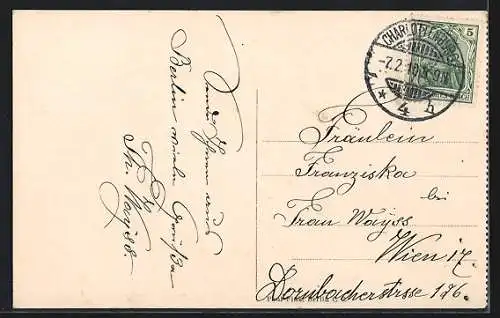 Sende Ihnen aus
Berlin viele Grüße
Th. Wayss.
CHARLOTTENBURG
-7.2.10.8-9N
* 4 h
5
Fräulein
Franziska
bei
Frau Wayss
Wien 17.
Dornbacherstrsse 126.